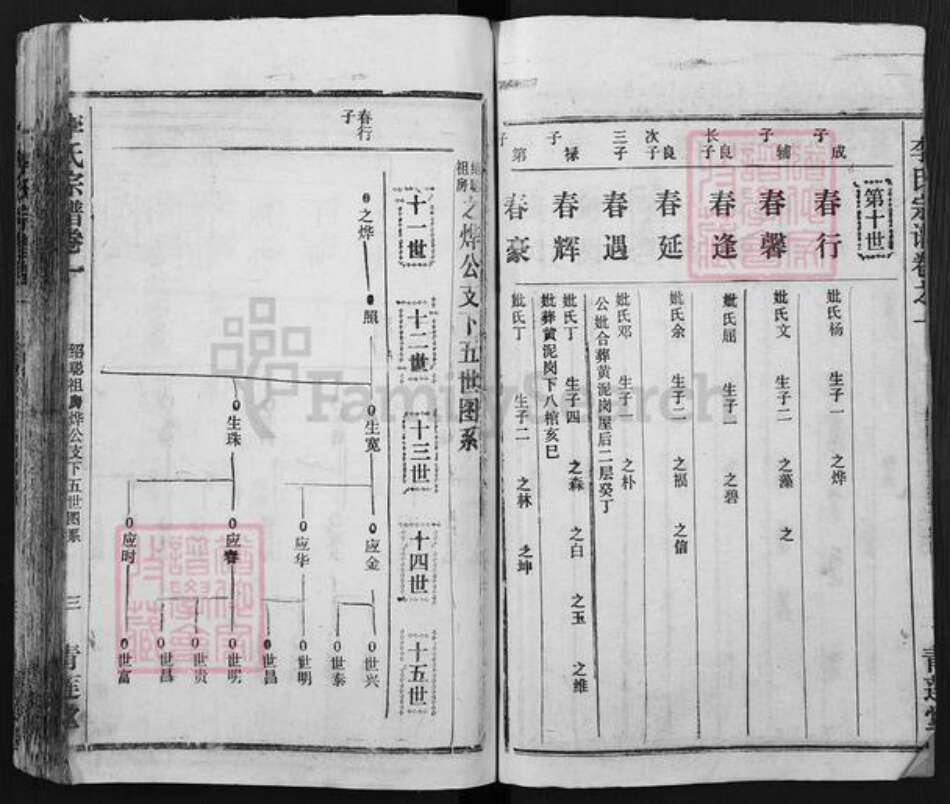 李氏宗谱卷之一
第十世
成子
春行
妣氏杨 生子一 之烨
辅子
春馨
妣氏文 生子二 之藻 之
良长子
春逢
妣氏屈 生子一 之碧
良次子
春延
妣氏余 生子二 之福 之信
三子
春遇
妣氏邓 生子一 之朴
公妣合葬黄泥岗屋后二层癸丁
禄子
春辉
妣氏丁 生子四 之森 之白 之玉 之维
妣葬黄泥岗下八棺亥巳
第子
春豪
妣氏丁 生子二 之林 之坤
青莲堂
绍聪祖房之烨公支下五世图系
十一世
十二世
十三世
十四世
十五世
春行子
之烨
照
生宽
生珠
应金
应华
应春
应时
世兴
世泰
世明
世昌
世明
世贵
世昌
世富
李氏宗谱卷一
绍聪祖房烨公支下五世图系
三
青莲堂
FamilySearch